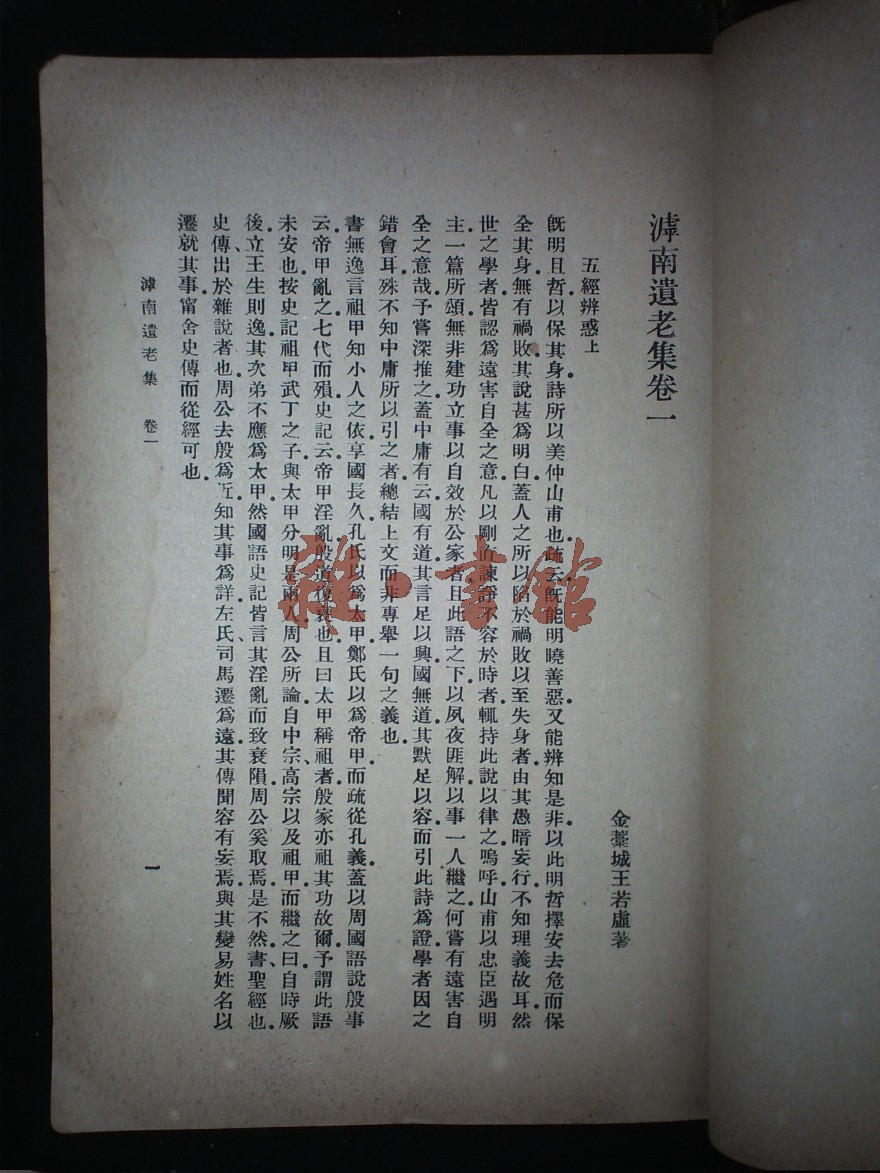 滹南遺老集卷一
金藁城王若虛著
五經辨惑上
旣明且哲以保其身詩所以美仲山甫也疏云旣能明曉善惡又能辨知是非以此明哲擇安去危而保
全其身無有禍敗其說甚爲明白蓋人之所以陷於禍敗以至失身者由其愚暗妄行不知理義故耳然
世之學者皆認爲遠害自全之意凡以剛直諫諍不容於時者輒持此說以律之嗚呼山甫以忠臣遇明
主一篇所頌無非建功立事以自效於公家者且此語之下以夙夜匪解以事一人繼之何嘗有遠害自
全之意哉予嘗深推之蓋中庸有云國有道其言足以興國無道其默足以容而引此詩爲證學者因之
錯會耳殊不知中庸所以引之者總結上文而非專舉一句之義也
書無逸言祖甲知小人之依享國長久孔氏以爲太甲鄭氏以爲帝甲而疏從孔義蓋以周國語說殷事
云帝甲亂之七代而殞史記云帝甲淫亂殷道復衰也且曰太甲稱祖者殷家亦祖其功故爾予謂此語
未安也按史記祖甲武丁之子與太甲分明是兩人周公所論自中宗、高宗以及祖甲而繼之曰自時厥
後立王生則逸其次弟不應爲太甲然國語史記皆言其淫亂而致衰隕周公奚取焉是不然書、聖經也
史傳、出於雜說者也周公去殷爲近知其事爲詳左氏、司馬遷爲遠其傳聞容有妄焉與其變易姓名以
遷就其事甯舍史傳而從經可也
滹南遺老集 卷一
一
雜·書館